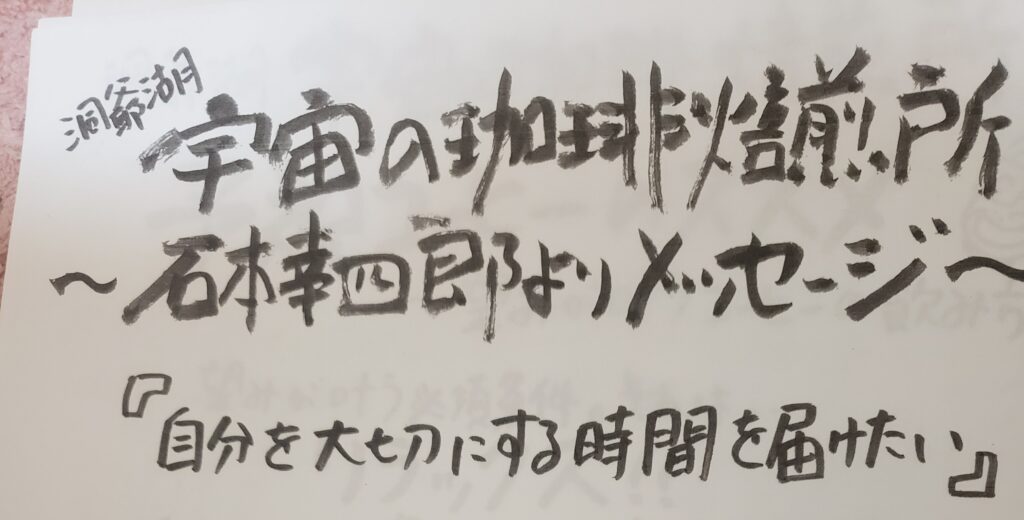 洞爺湖
宇宙の珈琲焙煎所
～石本幸四郎よりメッセージ～
『自分を大切にする時間を届けたい』